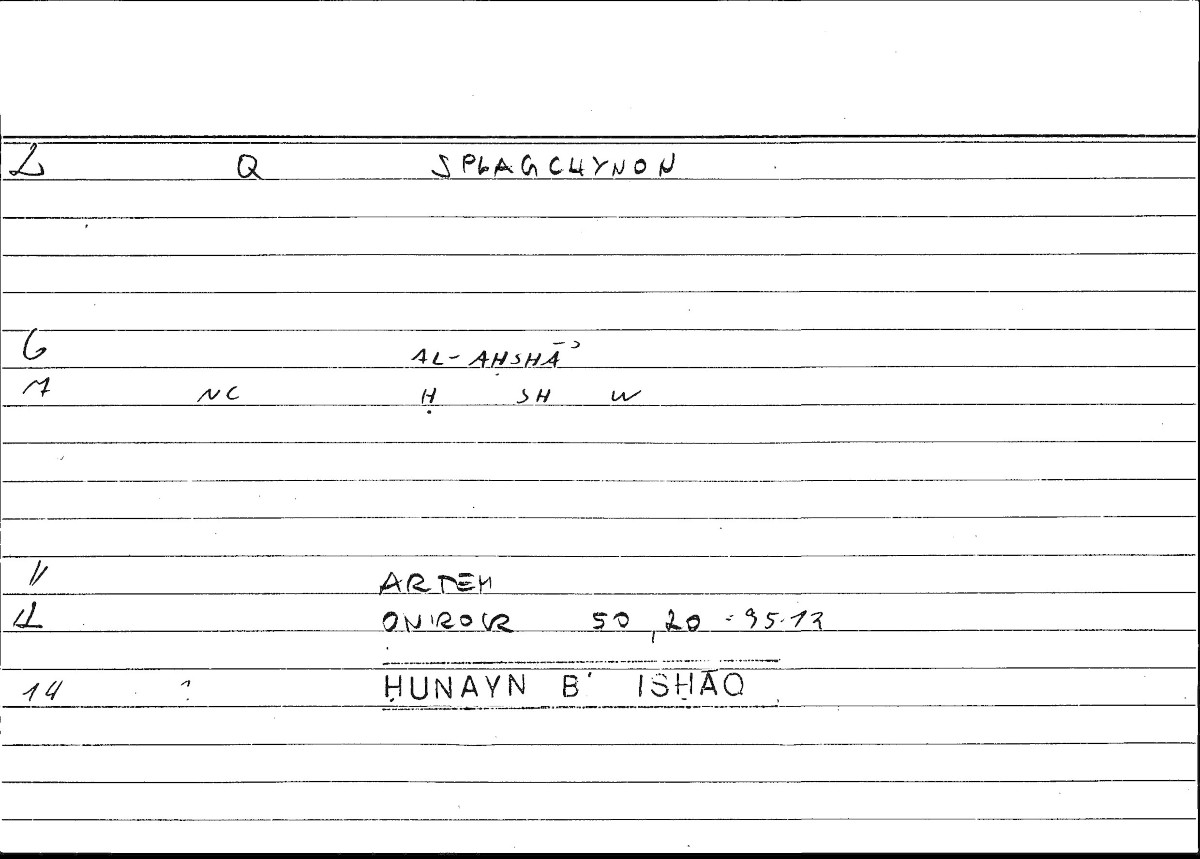 2 Q SPLAGCHYNON
6 AL-AḤSHĀʾ
7 NC Ḥ SH W
11 ARTEM
12 ONIROCR 50,20 = 95.13
14 ? ḤUNAYN B' ISḤĀQ